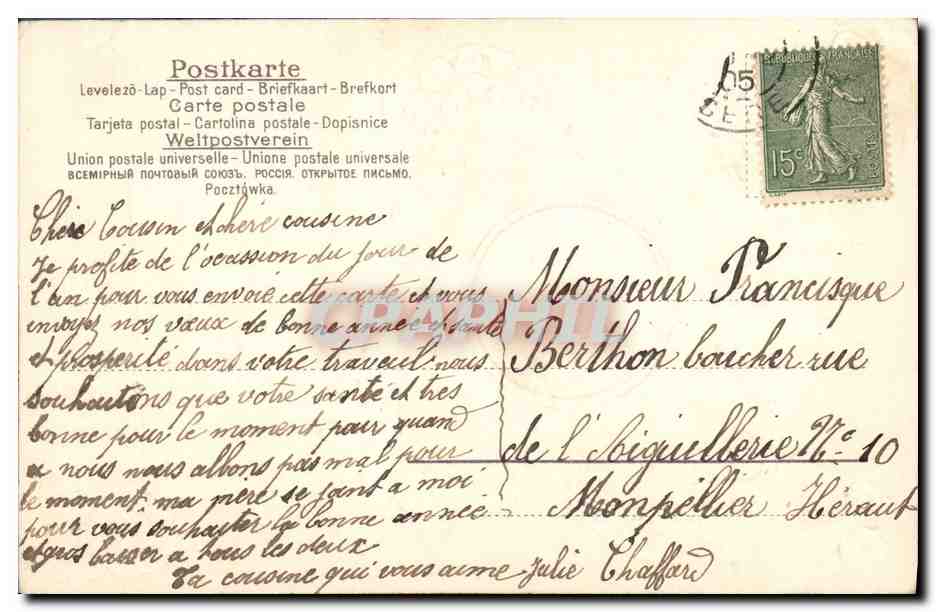 Postkarte
Levelezõ-Lap - Post card - Briefkaart - Brefkort
Carte postale
Tarjeta postal - Cartolina postale - Dopisnice
Weltpostverein
Union postale universelle - Unione postale universale
ВСЕМІРНЫЙ ПОЧТОВЫЙ СОЮЗЪ. РОССІЯ. ОТКРЫТОЕ ПИСЬМО.
Pocztówka.
05
CETTE
REPUBLIQUE FRANÇAISE
15c
POSTES
Chère Cousin et chère cousine
Je profite de l'ocassion du jour de
l'an pour vous envoie cette carte et vous
envoyez nos vœux de bonne année et santé
et prosperité dans votre travail nous
souhaitons que votre santé et très
bonne pour le moment pour quand
a nous nous allons pas mal pour
le moment. ma mère se joint a moi
pour vous souhaiter la bonne année
et gros baiser a tous les deux
Ta cousine qui vous aime Julie Chaffard
Monsieur Francisque
Berthon boucher rue
de l'Aiguillerie No 10
Monpellier Héraut
CPAPHIL